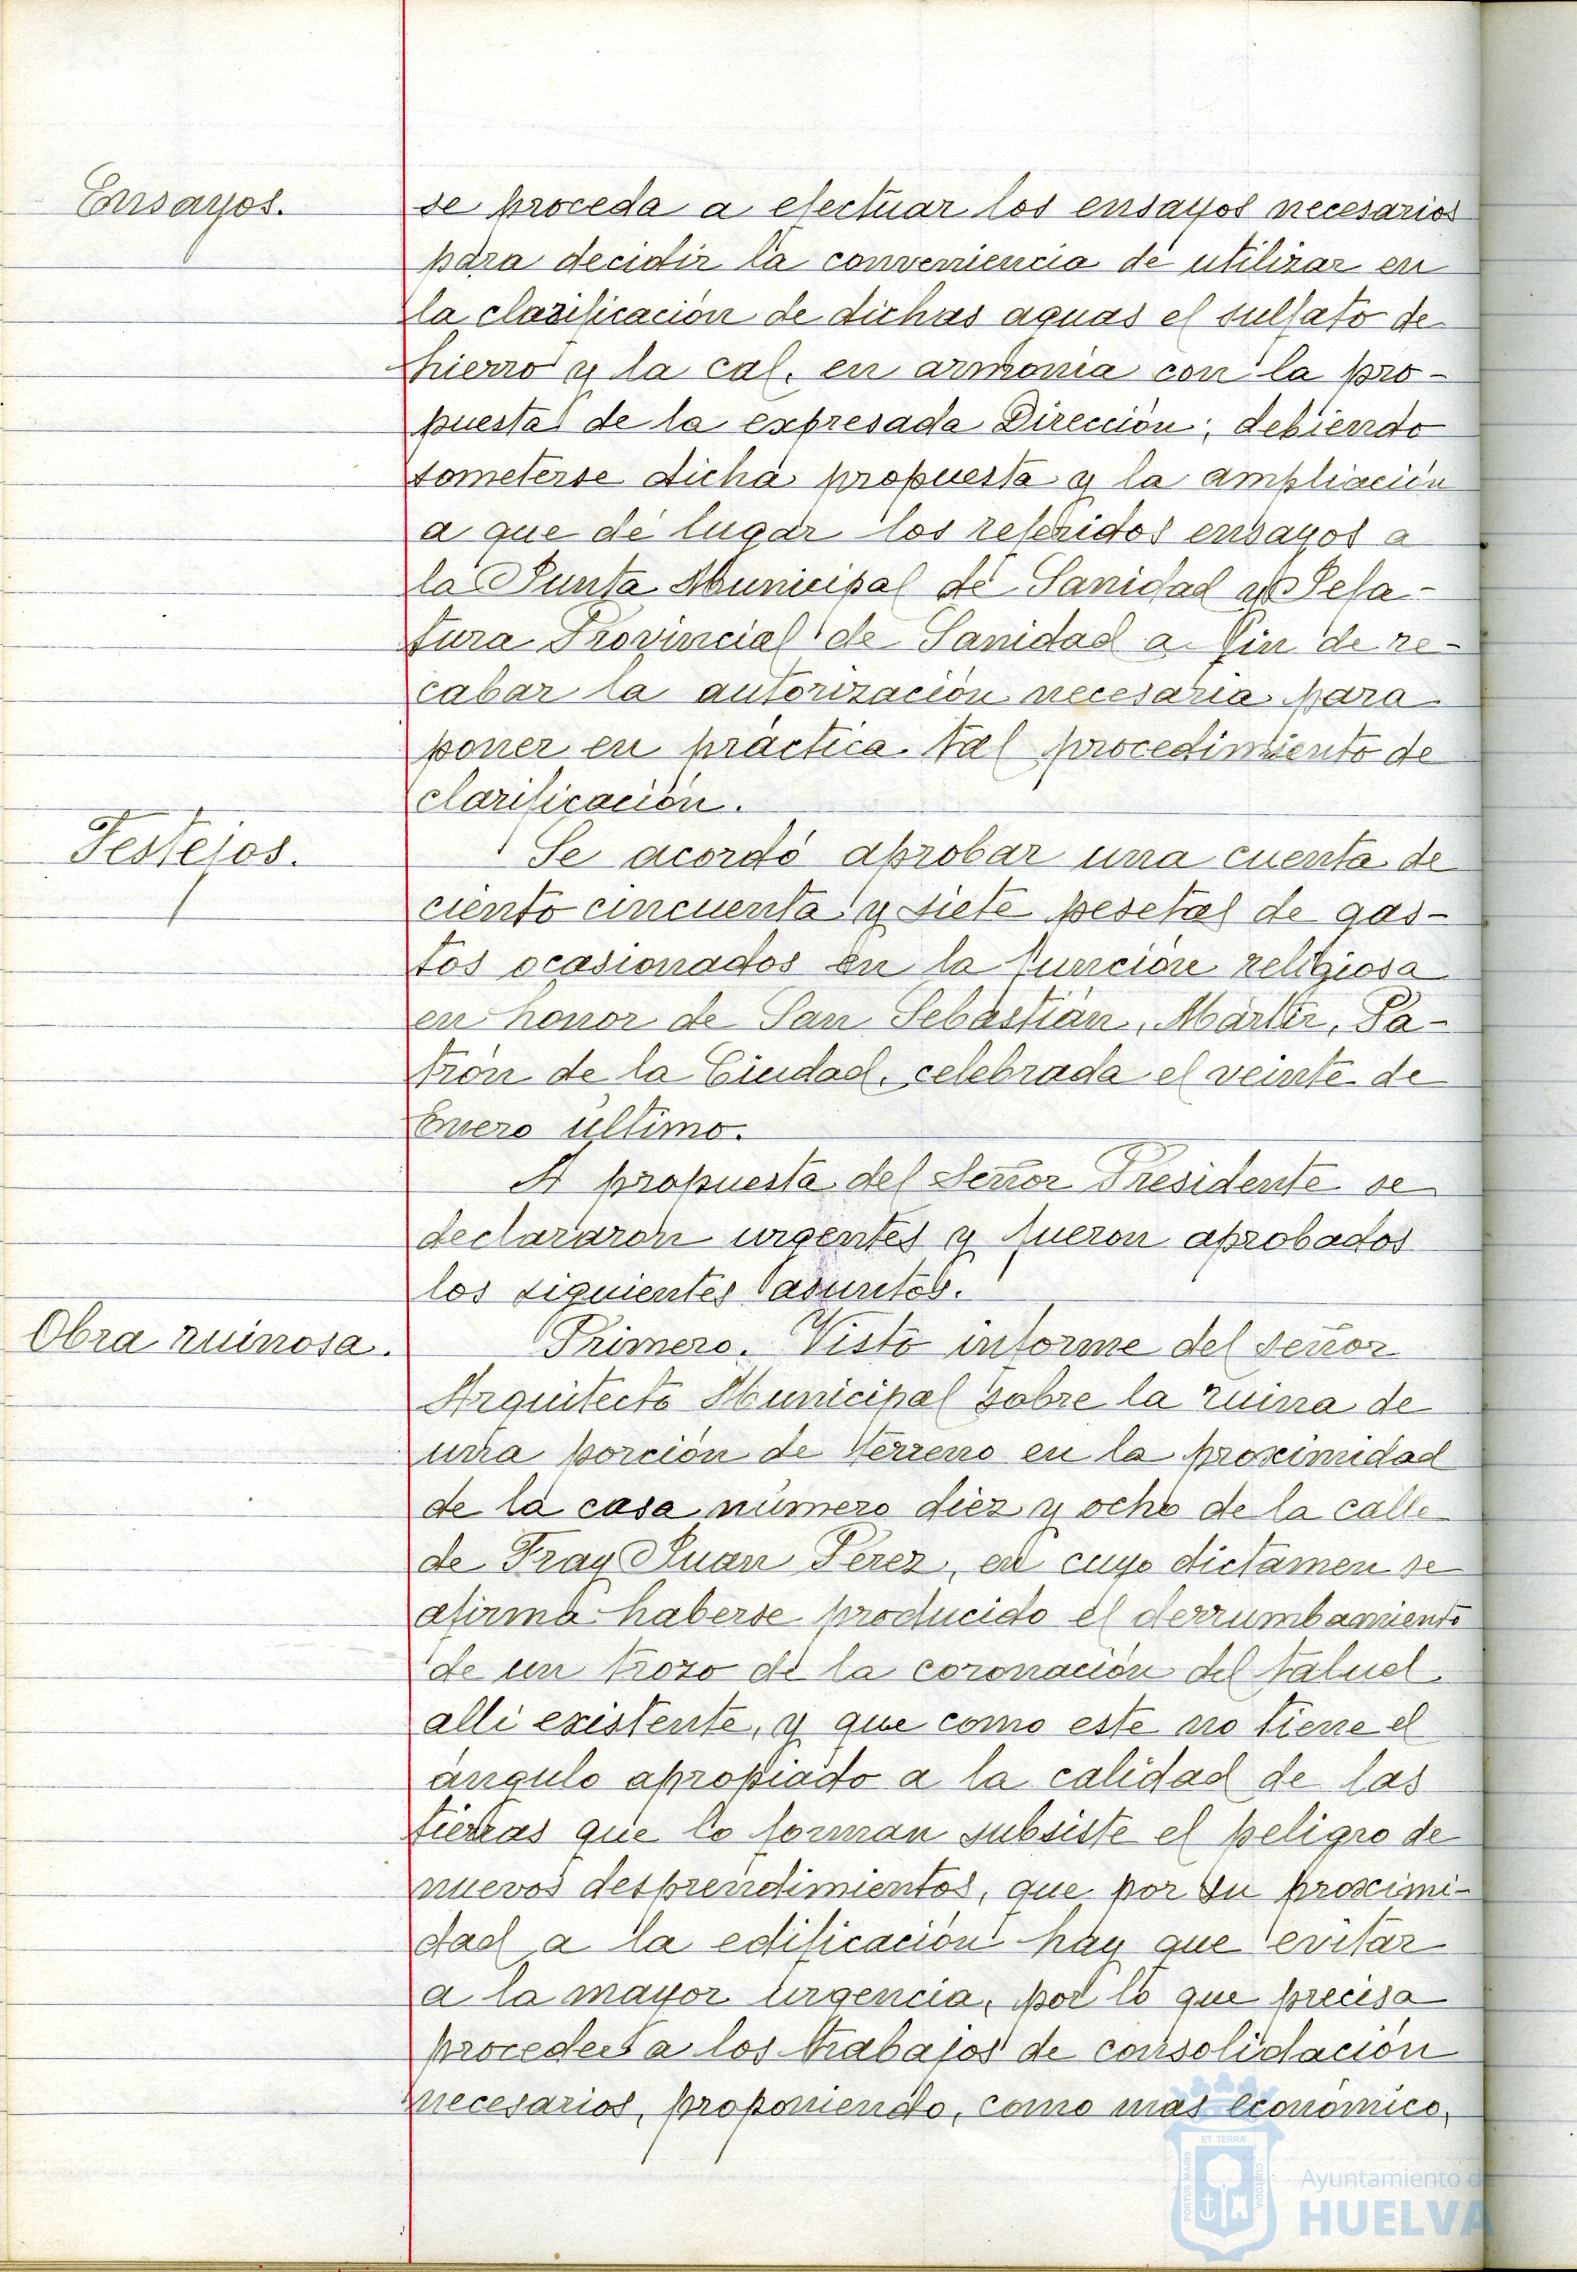 Ensayos.
se proceda a efectuar los ensayos necesarios
para decidir la conveniencia de utilizar en
la clarificación de dichas aguas el sulfato de
hierro y la cal, en armonía con la pro-
puesta de la expresada Dirección; debiendo
someterse dicha propuesta y la ampliación
a que dé lugar los referidos ensayos a
la Junta Municipal de Sanidad y Jefa-
tura Provincial de Sanidad a fin de re-
cabar la autorización necesaria para
poner en práctica tal procedimiento de
clarificación.
Festejos.
Se acordó aprobar una cuenta de
ciento cincuenta y siete pesetas de gas-
tos ocasionados en la función religiosa
en honor de San Sebastián, Mártir, Pa-
trón de la Ciudad, celebrada el veinte de
Enero último.
A propuesta del Señor Presidente se
declararon urgentes y fueron aprobados
los siguientes asuntos.
Obra ruinosa.
Primero. Visto informe del señor
Arquitecto Municipal sobre la ruina de
una porción de terreno en la proximidad
de la casa número diez y ocho de la calle
de Fray Juan Pérez, en cuyo dictamen se
afirma haberse producido el derrumbamiento
de un trozo de la coronación del talud
alli existente, y que como este no tiene el
ángulo apropiado a la calidad de las
tierras que lo forman subsiste el peligro de
nuevos desprendimientos, que por su proximi-
dad a la edificación hay que evitar
a la mayor urgencia, por lo que precisa
proceder a los trabajos de consolidación
necesarios, proponiendo, como mas económico,
ET TERRÆ
PORTUS MARIS
CUSTODIA
Ayuntamiento de
HUELVA